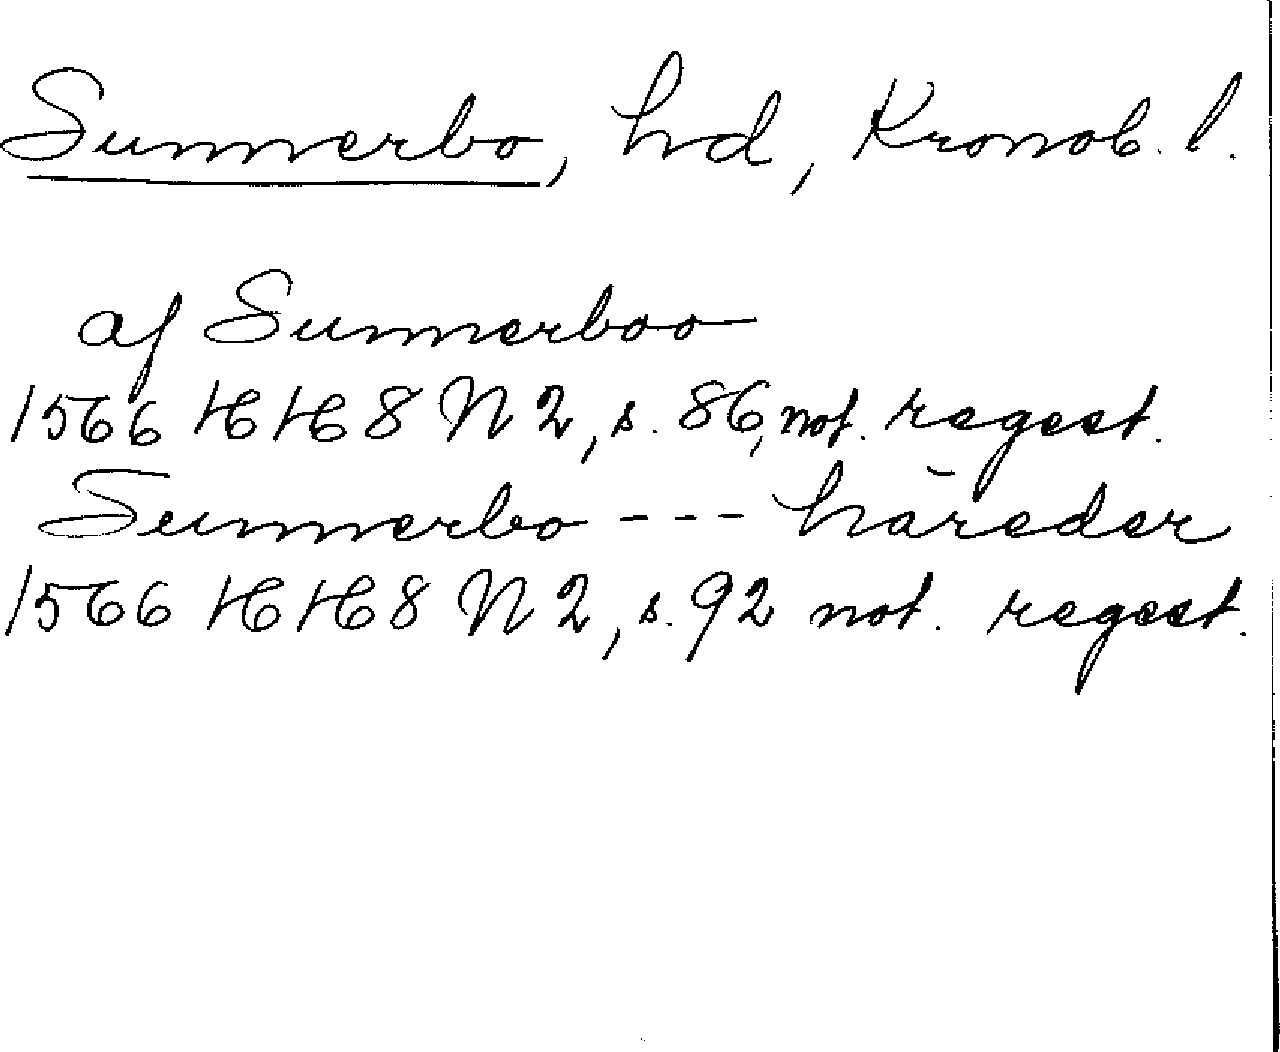 Sunnerbo, hd, Kronob. l.
af Sunnerboo
1566 HH 8 N 2, s. 86, not. regest.
Sunnerbo --- häreder
1566 HH 8 N 2, s. 92 not. regest.